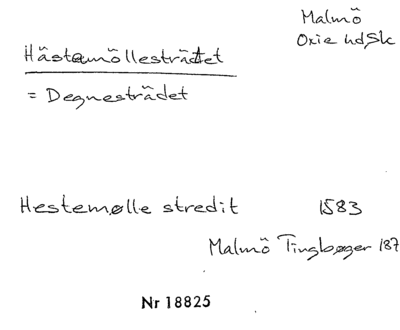 Malmö
Oxie hd Sk
Hästemöllestrătet
= Degnestrădet
Hestemølle stredit 1583
Malmö Tingbøger 187
Nr 18825